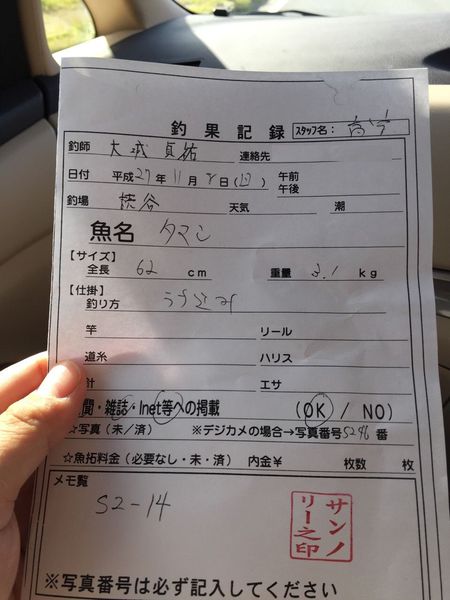 釣果記録 スタッフ名:
釣師 大城 貞祐 連絡先
日付 平成27年11月8日(日) 午前
午後
釣場 渋谷 天気 潮
魚名 タマン
【サイズ】
全長 62 cm 重量 3.1 kg
【仕掛】
釣り方
竿 リール
道糸 ハリス
針 エサ
聞・雑誌・Inet等への掲載 (OK / NO)
☆写真(未/済) ※デジカメの場合→写真番号5246番
☆魚拓料金(必要なし・未・済) 内金¥ 枚数 枚
メモ覧
S2-14
サンノリー之印
※写真番号は必ず記入してください